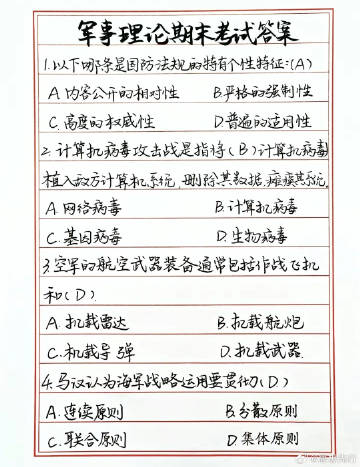 军事理论期末考试答案
1.以下哪条是国防法规的特有个性特征:(A)
A.内容公开的相对性 B.严格的强制性
C.高度的权威性 D.普遍的适用性
2.计算机病毒攻击战是指将(B)计算机病毒
植入敌方计算机系统,删除其数据,瘫痪其系统,
A.网络病毒 B.计算机病毒
C.基因病毒 D.生物病毒
3.空军的航空武器装备通常包括作战飞机
和(D)
A.机载雷达 B.机载航炮
C.机载导弹 D.机载武器
4.马汉认为海军战略运用要贯彻(D)
A.连续原则 B.分散原则
C.联合原则 D.集体原则